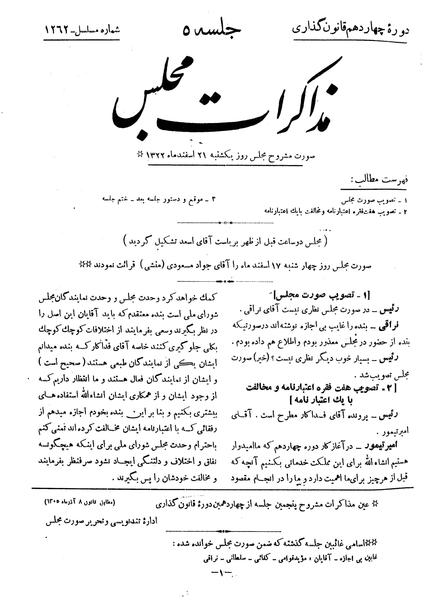 دورهٔ چهاردهم قانون گذاری
جلسه ۵
شماره مسلسل - ۱۲۶۲
مذاکرات مجلس
صورت مشروح مجلس روز یکشنبه ۲۱ اسفند ماه ۱۳۲۲ ※
فهرست مطالب:
۱ - تصویب صورت مجلس
۲ - تصویب هفت فقره اعتبارنامه و مخالفت با یک اعتبارنامه
۳ - موقع و دستور جلسه بعد - ختم جلسه
( مجلس دو ساعت قبل از ظهر بریاست آقای اسعد تشکیل گردید )
صورت مجلس روز چهارشنبه ۱۷ اسفند ماه را آقای جواد مسعودی (منشی) قرائت نمودند ※※
[۱ - تصویب صورت مجلس]
رئیس - در صورت مجلس نظری نیست؟ آقای نراقی.
نراقی - بنده را غایب بی اجازه نوشته‌اند در صورتیکه
بنده از حضور در مجلس معذور بودم و اطلاع هم داده بودم.
رئیس - بسیار خوب دیگر نظری نیست؟ (خیر) صورت
مجلس تصویب شد.
[۲ - تصویب هفت فقره اعتبارنامه و مخالفت
با یک اعتبار نامه]
رئیس - پرونده آقای فداکار مطرح است. آقای
امیرتیمور.
امیرتیمور - در آغاز کار دوره چهاردهم که ما امیدوار
هستیم انشاء الله برای این مملکت خدماتی بکنیم آنچه که
قبل از هر چیز برای ما اهمیت دارد و ما را در انجام مقصود
کمک خواهد کرد وحدت مجلس و وحدت نمایندگان مجلس
شورای ملی است بنده معتقدم که باید آقایان این اصل را
در نظر بگیرند و سعی بفرمایند از اختلافات کوچک کوچک
بکلی جلوگیری کنند خاصه آقای فداکار که بنده میدانم
ایشان یکی از نمایندگان طبیعی هستند ( صحیح است )
و ایشان از نمایندگان فعال هستند و ما انتظار داریم که
از وجود ایشان و از همکاری ایشان انشاء الله استفاده‌های
بیشتری بکنیم و بنا بر این بنده بخودم اجازه میدهم از
رفقائی که با اعتبارنامه ایشان مخالفت کرده‌اند تمنی کنم
باحترام وحدت مجلس شورای ملی برای اینکه هیچگونه
نفاق و اختلاف و دلتنگی ایجاد نشود صرفنظر بفرمایند
و مخالفت خودشان را پس بگیرند.
※ عین مذاکرات مشروح پنجمین جلسه از چهاردهمین دورهٔ قانون گذاری
(مطابق قانون ۸ آذر ماه ۱۳۰۵)
ادارهٔ تندنویسی و تحریر صورت مجلس
※※ اسامی غائبین جلسه گذشته که ضمن صورت مجلس خوانده شده:
غایبین بی اجازه - آقایان: مؤیدقوامی - کفائی - سلطانی - نراقی
-۱-